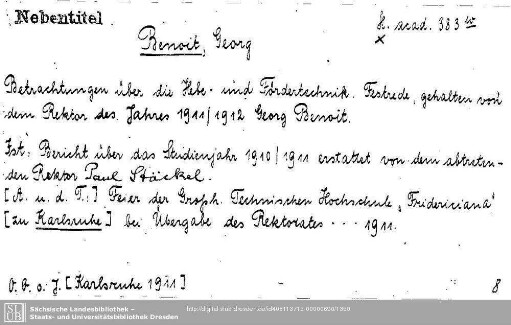 Nebentitel
H. acad. 383 w
x
Benoit, Georg
Betrachtungen über die Hebe- und Fördertechnik. Festrede, gehalten von
dem Rektor des Jahres 1911/1912 Georg Benoit.
Ist: Bericht über das Studienjahr 1910/1911 erstattet von dem abtreten-
den Rektor Paul Stäckel.
[A. u. d. T.:] Feier der Großh. Technischen Hochschule „Fridericiana"
[zu Karlsruhe] bei Übergabe des Rektorates - - - 1911.
O. O. o. J. [Karlsruhe 1911]
8
Sächsische Landesbibliothek –
Staats- und Universitätsbibliothek Dresden